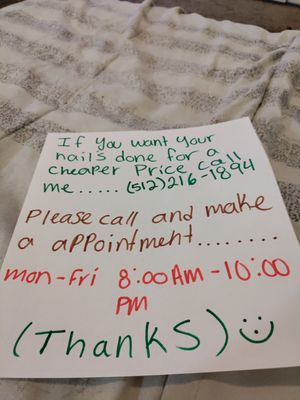 If you want your
nails done for a
cheaper Price call
me..... (512)216-1894
Please call and make
a appointment........
mon-Fri 8:00Am-10:00
PM
(Thanks)